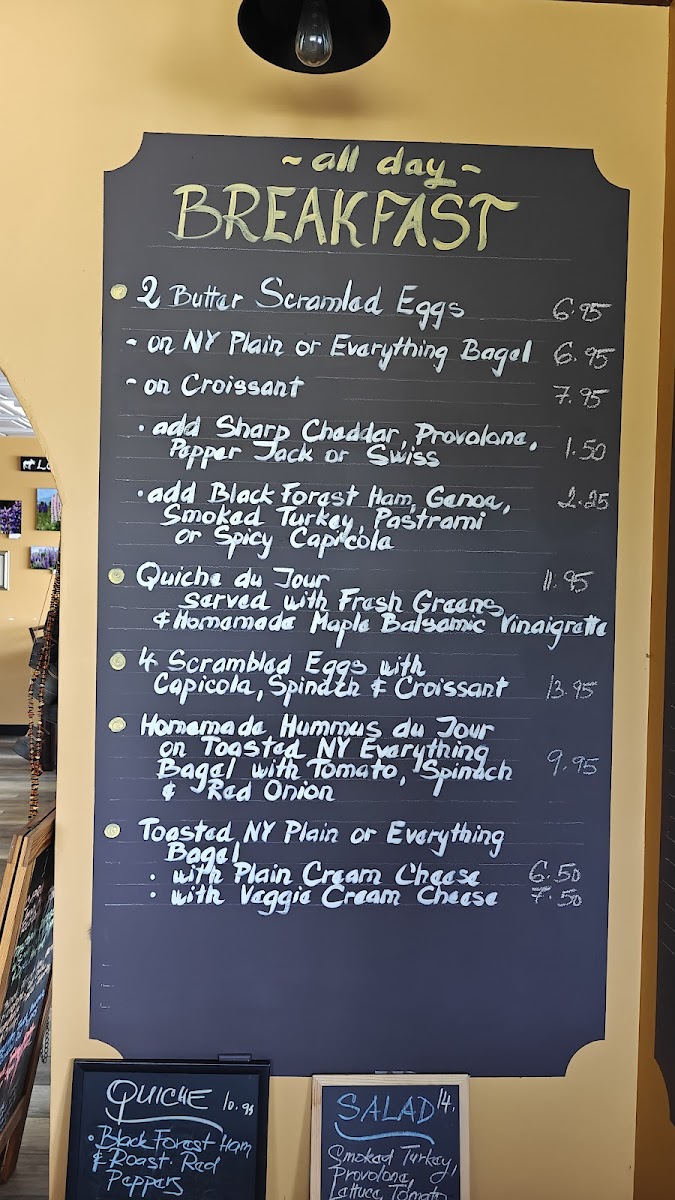 ~ all day ~
BREAKFAST
2 Butter Scramled Eggs 6.95
- on NY Plain or Everything Bagel 6.95
- on Croissant 7.95
· add Sharp Cheddar, Provolone, 1.50
Pepper Jack or Swiss
· add Black Forest Ham, Genoa, 2.25
Smoked Turkey, Pastrami
or Spicy Capicola
Quiche du Jour 11.95
served with Fresh Greens
& Homemade Maple Balsamic Vinaigrette
4 Scrambled Eggs with
Capicola, Spinach & Croissant 13.95
Homemade Hummus du Jour
on Toasted NY Everything
Bagel with Tomato, Spinach 9.95
& Red Onion
Toasted NY Plain or Everything
Bagel
· with Plain Cream Cheese 6.50
· with Veggie Cream Cheese 7.50
QUICHE 10.95
· Black Forest Ham
& Roast. Red
Peppers
SALAD 14.
Smoked Turkey,
Provolone,
Lettuce, Tomato